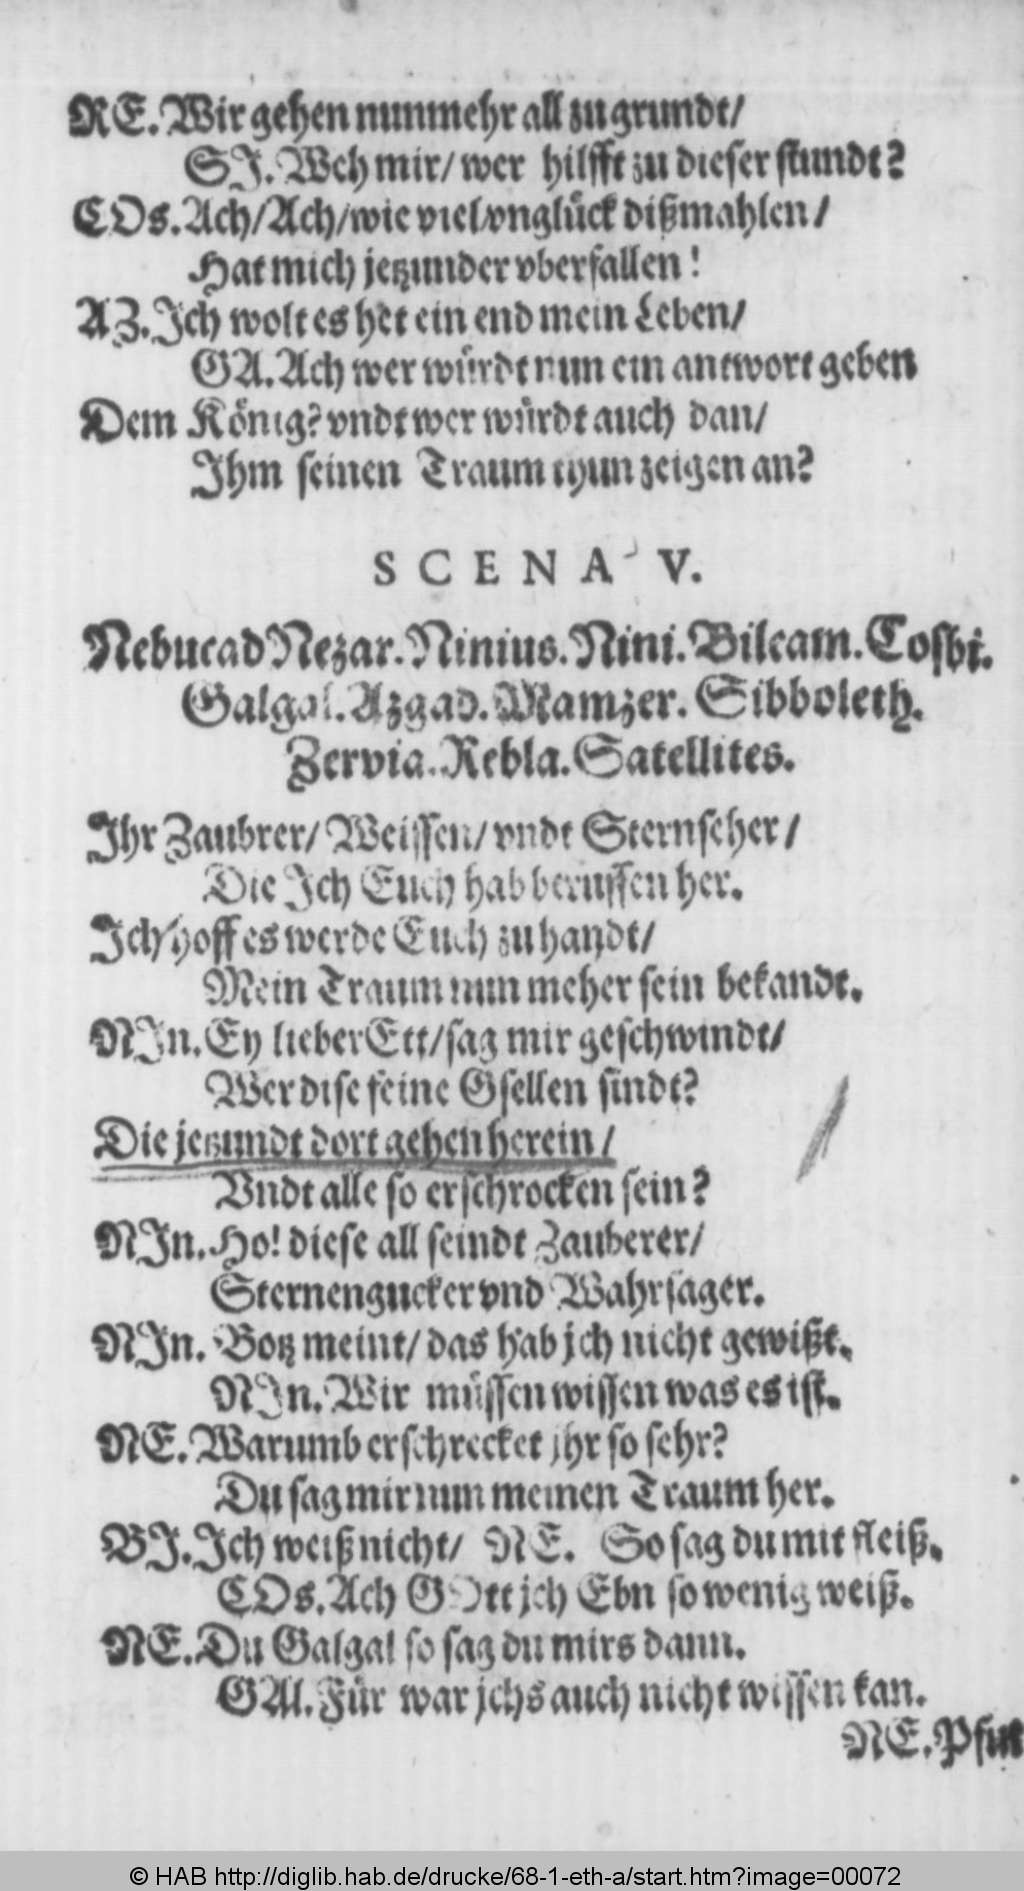 RE. Wir gehen nunmehr all zu grundt/
SI. Weh mir/ wer hilfft zu dieser stundt?
COs. Ach/ Ach/ wie viel vnglück dißmahlen/
Hat mich jetzunder vberfallen!
AZ. Ich wolt es het ein end mein Leben/
GA. Ach wer würdt nun ein antwort geben
Dem König? vndt wer würdt auch dan/
Ihm seinen Traum thun zeigen an?
SCENA V.
NebucadNezar. Ninius. Nini. Bileam. Cosbi.
Galgal. Azgad. Mamzer. Sibboleth.
Zervia. Rebla. Satellites.
Ihr Zaubrer/ Weissen/ vndt Sternseher/
Die Ich Euch hab beruffen her.
Ich hoff es werde Euch zu handt/
Mein Traum nun meher sein bekandt.
NIn. Ey lieber Ett/ sag mir geschwindt/
Wer dise feine Gsellen sindt?
Die jetzundt dort gehen herein/
Vndt alle so erschrocken sein?
NIn. Ho! diese all seindt Zauberer/
Sternengucker vnd Wahrsager.
NIn. Botz meint/ das hab jch nicht gewißt.
NIn. Wir müssen wissen was es ist.
NE. Warumb erschrecket jhr so sehr?
Du sag mir nun meinen Traum her.
BI. Ich weiß nicht/ NE. So sag du mit fleiß.
COs. Ach GOtt jch Ebn so wenig weiß.
NE. Du Galgal so sag du mirs dann.
GAl. Für war jchs auch nicht wissen kan.
NE. Pfui
© HAB http://diglib.hab.de/drucke/68-1-eth-a/start.htm?image=00072